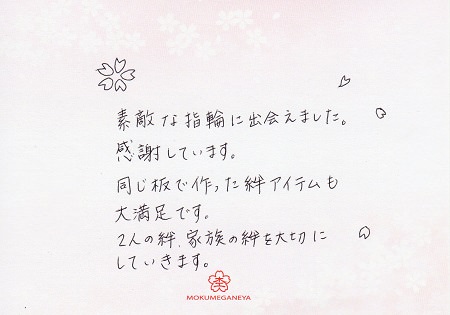 素敵な指輪に出会えました。
感謝しています。
同じ板で作った絆アイテムも
大満足です。
2人の絆、家族の絆を大切に
していきます。
MOKUMEGANEYA